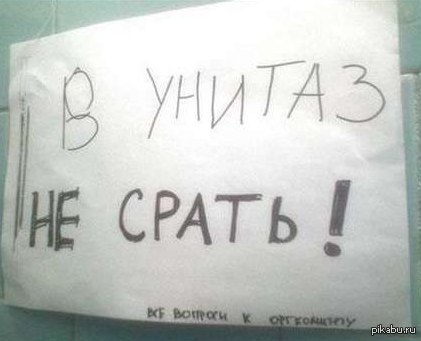 В УНИТАЗ
НЕ СРАТЬ!
ВСЕ ВОПРОСЫ К ОРГКОМИТЕТУ
pikabu.ru